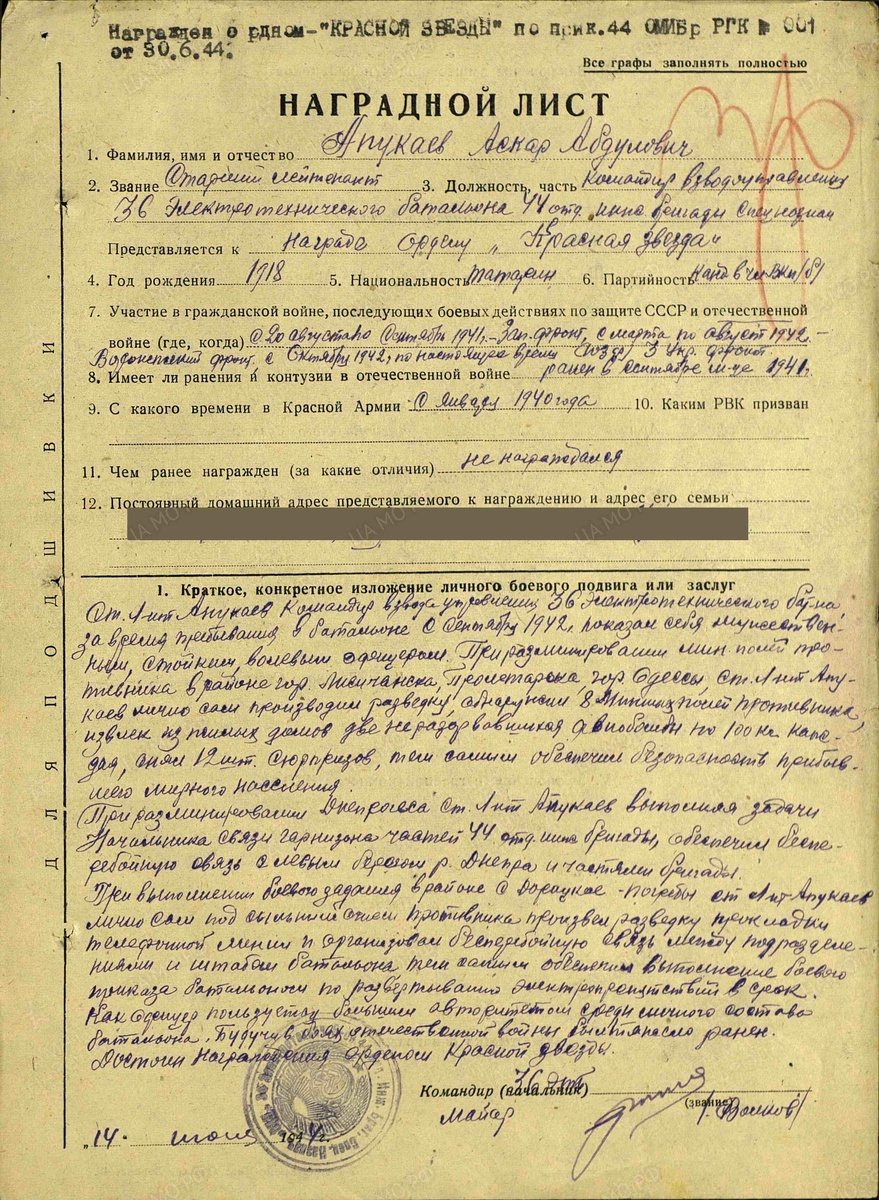 Награжден о рдном-"КРАСНОЙ ЗВЕЗДЫ" по прик.44 ОМИБр РГК № 001
от 30.6.44.
Все графы заполнять полностью
НАГРАДНОЙ ЛИСТ
1. Фамилия, имя и отчество Апукаев Аскар Абдулович
2. Звание Старший лейтенант 3. Должность, часть командир взвода управления
36 Электротехнического батальона 44 отд. инж. бригады Спецназнач
Представляется к награде Ордену „Красная звезда"
4. Год рождения 1918 5. Национальность татарин 6. Партийность канд в чл ВКП/б/
7. Участие в гражданской войне, последующих боевых действиях по защите СССР и отечественной
войне (где, когда) с 20 августа по Сентябрь 1941г.-Зап. фронт, с марта по август 1942.-
Воронежский фронт, с Октября 1942, по настоящее время 3 Укр. фронт
8. Имеет ли ранения и контузии в отечественной войне ранен в сентябре м-це 1941г.
9. С какого времени в Красной Армии с января 1940 года 10. Каким РВК призван
11. Чем ранее награжден (за какие отличия) не награждался
12. Постоянный домашний адрес представляемого к награждению и адрес его семьи
ДЛЯ ПОДШИВКИ
1. Краткое, конкретное изложение личного боевого подвига или заслуг
Ст. Л-нт Апукаев командир взвода управления 36 Электротехнического бат-на,
за время пребывания в батальоне с Сентября 1942г. показал себя мужествен-
ным, стойким, волевым офицером. При разминировании мин. полей про-
тивника в районе гор. Лисичанска, Пролетарска, гор. Одессы, ст. Л-нт Апу-
каев лично сам производил разведку, обнаружил 8 минных полей противника,
извлек из жилых домов две неразорвавшихся авиабомбы по 100 кг. каж-
дая, снял 12 шт. сюрпризов, тем самым обеспечил безопасность прибыв-
шего мирного населения.
При разминировании Днепрогэса ст. Л-нт Апукаев выполняя задачи
Начальника связи гарнизона частей 44 отд. инж. бригады, обеспечил беспе-
ребойную связь с левым берегом р. Днепра и частями бригады.
При выполнении боевого задания в районе с Дороцкое - Погребы ст Л-нт Апукаев
лично сам под сильным огнем противника произвел разведку прокладки
телефонной линии и организовал бесперебойную связь между подразделе-
ниями и штабом батальона тем самым обеспечил выполнение боевого
приказа батальоном по развертыванию электропрепятствий в срок.
Как офицер пользуется большим авторитетом среди личного состава
батальона. Будучи в боях отечественной войны был ранен.
Достоин Награждения орденом Красной звезды.
Командир (начальник) 36
Майор (звание) /Волков/
„14. июня 1944г.